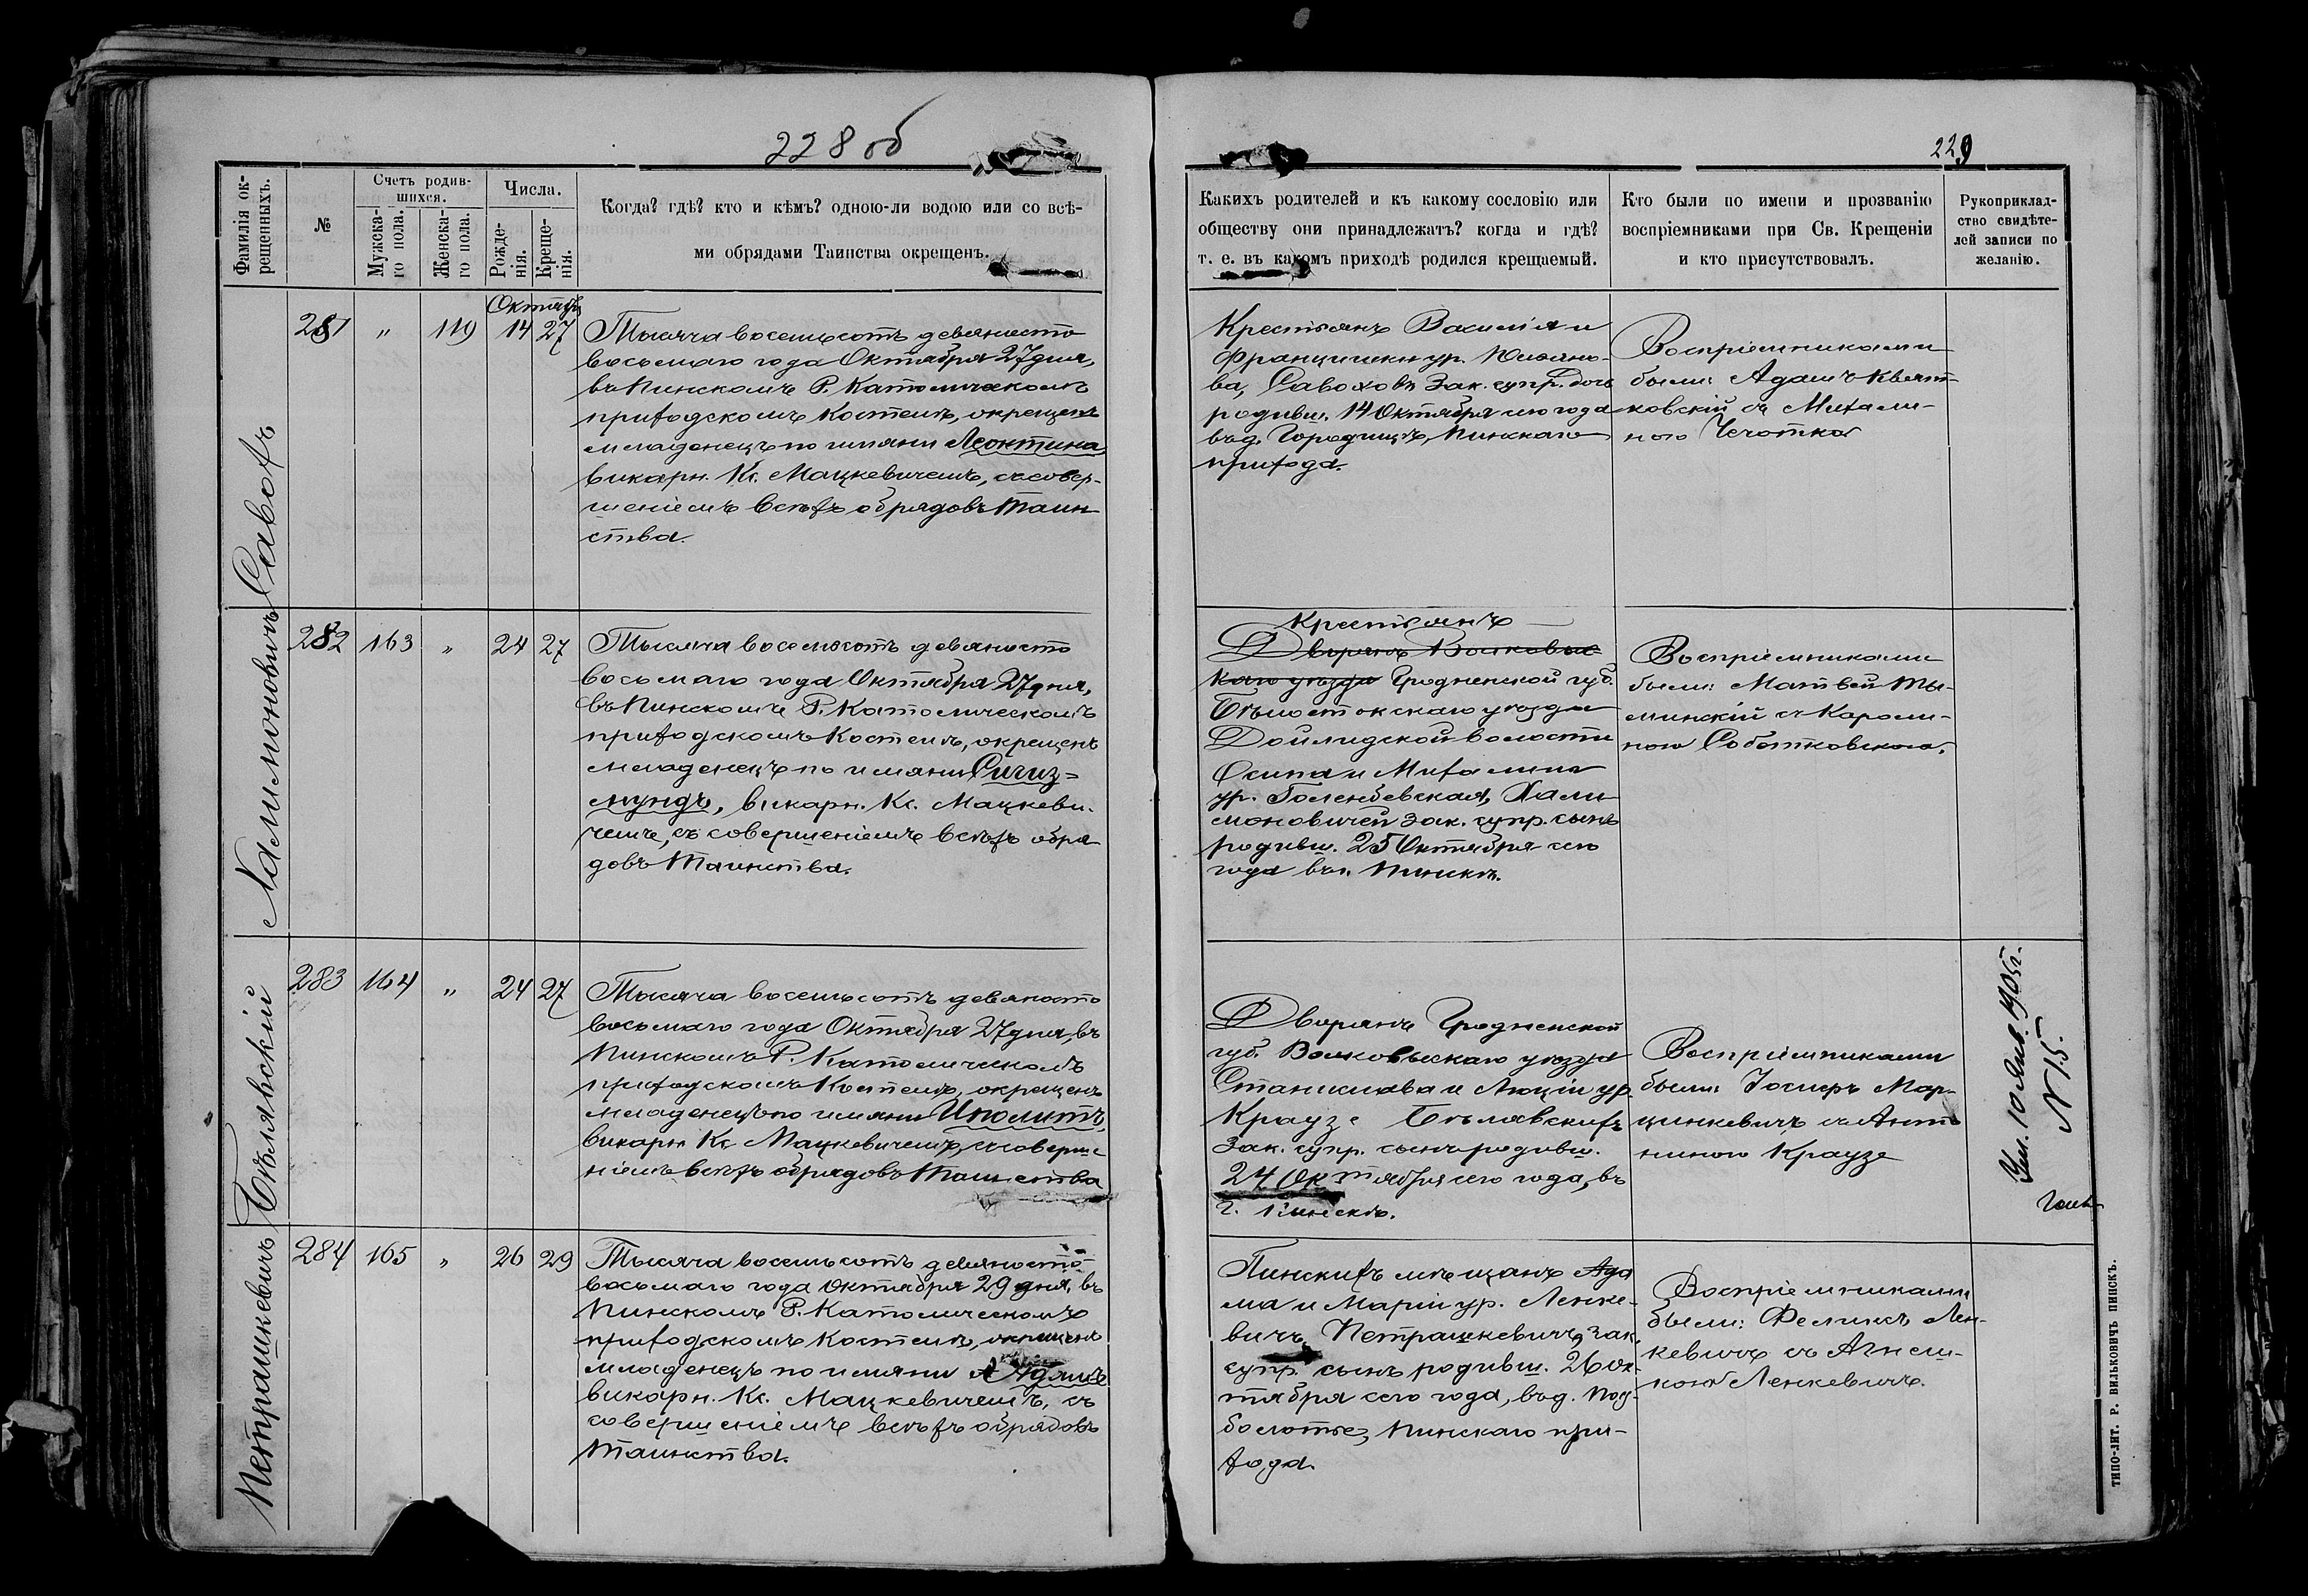 228 об
Фамилія ок-
рещенныхъ.
№
Счетъ родив-
шихся.
Мужска-
го пола.
Женска-
го пола.
Числа.
Рожде-
нія.
Креще-
нія.
Когда? гдѣ? кто и кѣмъ? одною-ли водою или со всѣ-
ми обрядами Таинства окрещенъ.
Савохъ
281 " 119
Октябрь
14 27
Тысяча восемьсотъ девяносто
восьмаго года Октября 27 дня,
въ Пинскомъ Р. Католическомъ
приходскомъ Костелѣ, окрещенъ
младенецъ по имяни Леонтина
викарн. Кс. Мацкевичемъ, съ совер-
шеніемъ всѣхъ обрядовъ Таин
ства.
Халимоновичъ
282 163 " 24 27
Тысяча восемьсотъ девяносто
восьмаго года Октября 27 дня,
въ Пинскомъ Р. Католическомъ
приходскомъ Костелѣ, окрещенъ
младенецъ по имяни Сигиз=
мундъ, викарн. Кс. Мацкеви-
чемъ, съ совершеніемъ всѣхъ обря
довъ Таинства.
Бѣлявскій
283 164 " 24 27
Тысяча восемьсотъ девяносто
восьмаго года Октября 27 дня, въ
Пинскомъ Р. Католическомъ
приходскомъ Костелѣ, окрещенъ
младенецъ по имяни Иполитъ,
викарн Кс Мацкевичемъ, съ соверше
ніемъ всѣхъ обрядовъ Таинства
Петрашкевичъ
284 165 " 26 29
Тысяча восемьсотъ девяносто
восьмаго года Октября 29 дня, въ
Пинскомъ Р. Католическомъ
приходскомъ Костелѣ, окрещенъ
младенецъ по имяни Адамъ
викарн. Кс. Мацкевичемъ, съ
совершеніемъ всѣхъ обрядовъ
Таинства.
229
Какихъ родителей и къ какому сословію или
обществу они принадлежатъ? когда и гдѣ?
т. е. въ какомъ приходѣ родился крещаемый.
Кто были по имени и прозванію
воспріемниками при Св. Крещеніи
и кто присутствовалъ.
Рукоприклад-
ство свидѣте-
лей записи по
желанію.
Крестьянъ Василія и
Францишки ур.
ва, Савоховъ Зак. супр. дочь
родивш. 14 Октября сего года
въ д. Городищѣ, Пинскаго
прихода.
Воспріемниками
были: Адамъ Квят-
ковскій съ Михали-
ною Чечотко
Крестьянъ
Дворянъ Волковыс
каго уѣзда Гродненской губ.
Бѣлостокскаго уѣзда
Дойлидской волости
Осипа и Михалины
ур. Голембевская, Хали
моновичей зак. супр. сынъ
родивш. 25 Октября сего
года въ г. Пинскѣ.
Воспріемниками
были: Матвей Ты-
минскій съ Кароли-
ною Соботковскою.
Дворянъ Гродненской
губ. Волковыскаго уѣзда
Станислава и Люціи ур.
Краузе Бѣлявскихъ
Зак. супр. сынъ родивш.
24 Октября сего года, въ
г. Пинскѣ.
Воспріемниками
были: Іосифъ Мар-
цинкевичъ съ Анто
ниною Краузе
10 Янв. 1905 г.
N 15.
Пинскихъ мѣщанъ Ада
ма и Маріи ур. Ленке-
вичъ Петрашкевичъ, зак.
супр. сынъ родивш. 26 Ок-
тября сего года, въ д. Под-
болотье, Пинскаго при-
хода.
Воспріемниками
были: Феликсъ Лен-
кевичъ съ Агнеш-
кою Ленкевичъ.
ТИПО-ЛИТ. Р. ВИЛЬКОВИЧЪ ПИНСКЪ.